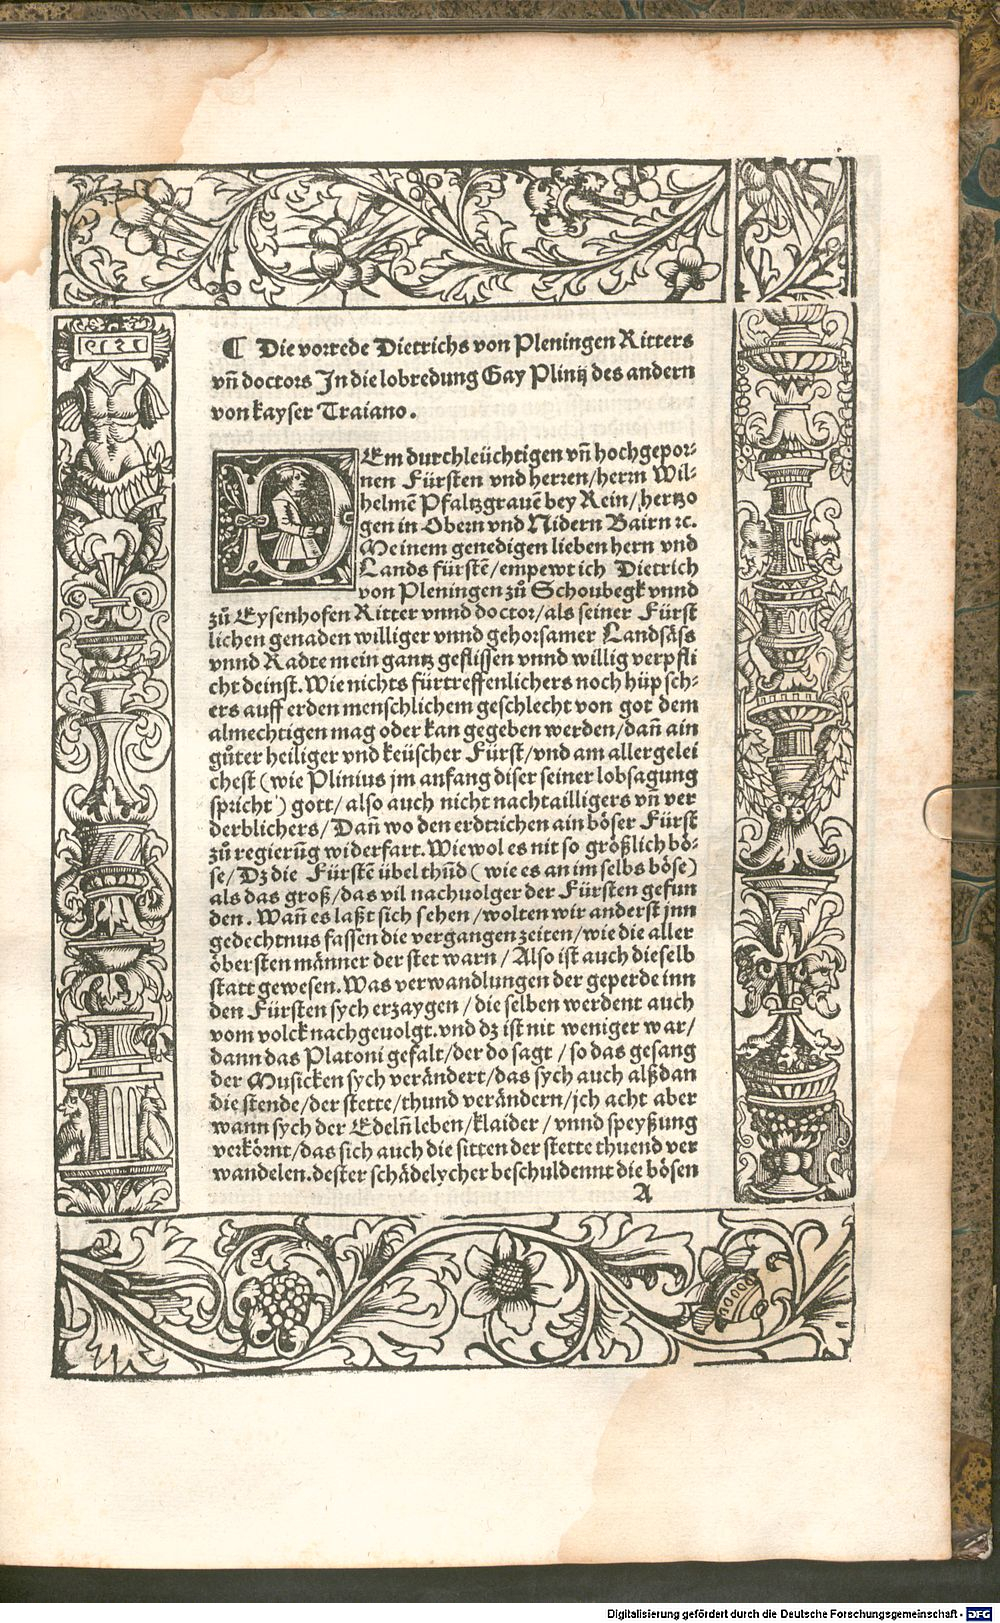 ¶ Die vorrede Dietrichs von Pleningen Ritters
vn̄ doctors In die lobredung Gay Plinij des andern
von kayser Traiano.
DEm durchleüchtigen vn̄ hochgepor⸗
nen Fürsten vnd herren/herrn Wil⸗
helmē Pfaltzgrauē bey Rein/hertzo
gen in Obern vnd Nidern Bairn ⁊c.
Meinem genedigen lieben hern vnd
Lands fürstē/empewt ich Dietrich
von Pleningen zů Schoubegk vnnd
zů Eysenhofen Ritter vnnd doctor/als seiner Fürst
lichen genaden williger vnnd gehorsamer Landsäss
vnnd Radte mein gantz geflissen vnnd willig verpfli
cht deinst. Wie nichts fürtreffenlichers noch hüpsch⸗
ers auff erden menschlichem geschlecht von got dem
almechtigen mag oder kan gegeben werden/dan̄ ain
gůter heiliger vnd keüscher Fürst/vnd am allergelei
chest (wie Plinius jm anfang diser seiner lobsagung
spricht) gott/also auch nicht nachtailligers vn̄ ver
derblichers/Dan̄ wo den erdtrichen ain böser Fürst
zů regierūg widerfart. Wiewol es nit so größlich bö⸗
se/Dz die Fürstē übel thůnd (wie es an im selbs böse)
als das groß/das vil nachuolger der Fürsten gefun
den. Wan̄ es laßt sich sehen/wolten wir anderst jnn
gedechtnus fassen die vergangen zeiten/wie die aller
öbersten männer der stet warn/Also ist auch dieselb
statt gewesen. Was verwandlungen der geperde inn
den Fürsten sych erzaygen/die selben werdent auch
vom volck nachgeuolgt. vnd dz ist nit weniger war/
dann das Platoni gefalt/der do sagt/so das gesang
der Musicken sych verändert/das sych auch alßdan
die stende/der stette/thund verändern/jch acht aber
wann sych der Edeln̄ leben/klaider/vnnd speyßung
verkömt/das sich auch die sitten der stette thuend ver
wandelen. dester schädelycher beschuldennt die bösen
A
Digitalisierung gefördert durch die Deutsche Forschungsgemeinschaft - DFG